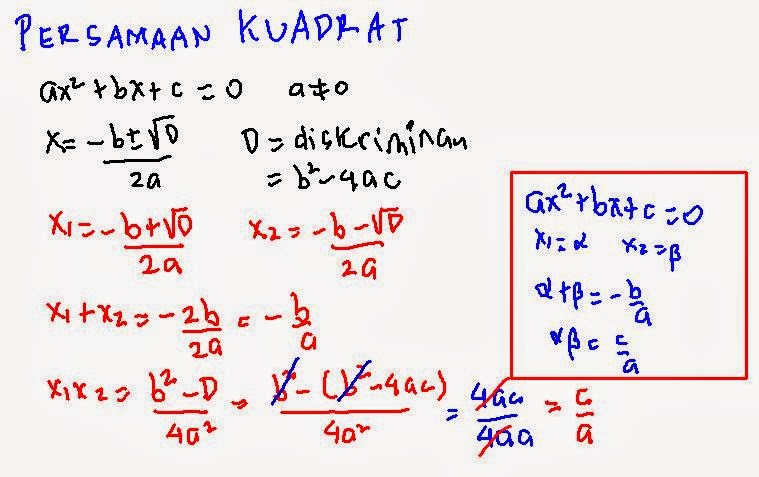 PERSAMAAN KUADRAT
ax² + bx + c = 0 a ≠ 0
x = -b ± √D / 2a D = diskriminan
= b² - 4ac
x₁ = -b + √D / 2a x₂ = -b - √D / 2a
x₁ + x₂ = -2b / 2a = -b/a
x₁x₂ = b² - D / 4a² = b² - (b² - 4ac) / 4a² = 4ac / 4aa = c/a
ax² + bx + c = 0
x₁ = α x₂ = β
α + β = -b/a
αβ = c/a